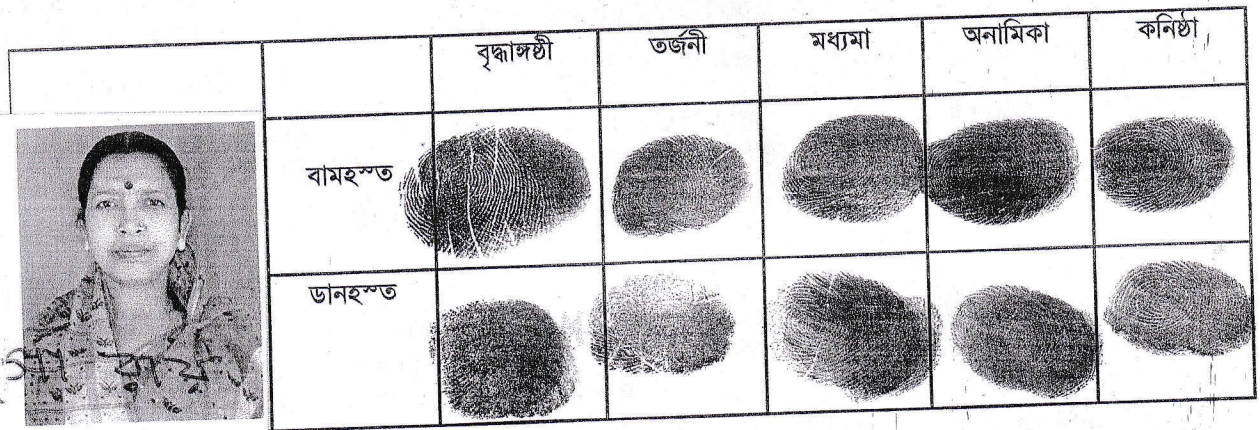 বৃদ্ধাঙ্গষ্ঠী তর্জনী মধ্যমা অনামিকা কনিষ্ঠা
বামহস্ত
ডানহস্ত
রায়